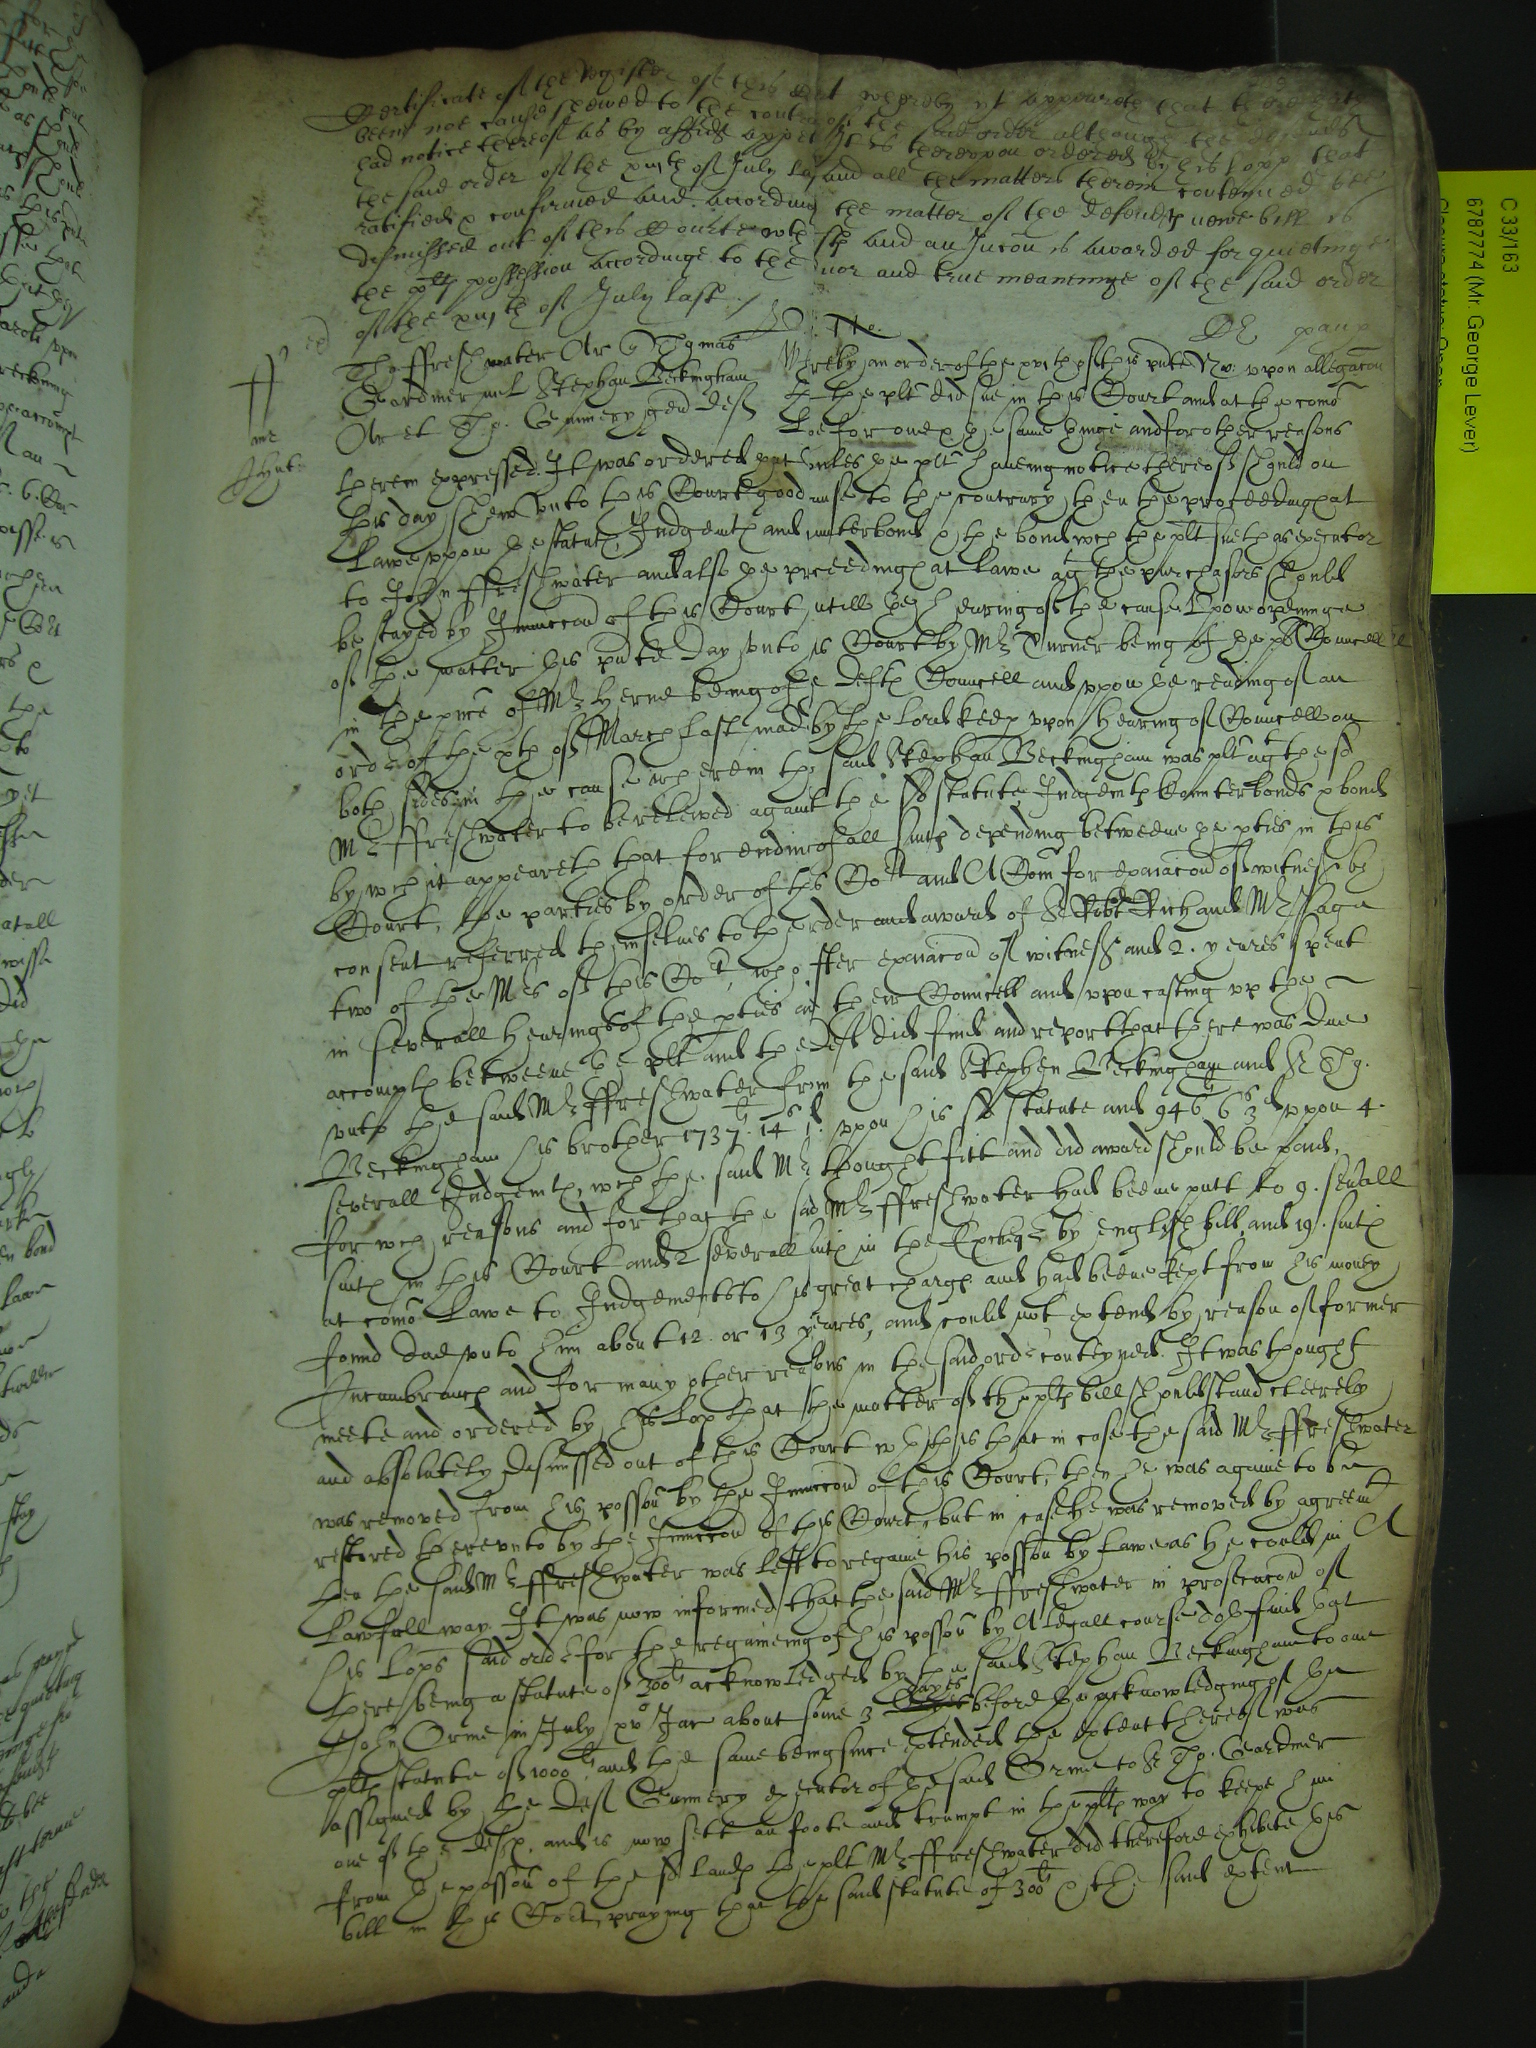 Certificate of the Register of this Court whereby yt appeareth that there hath
beene noe cause shewed to the contrary of the said order although the defendts
had notice thereof as by affidt appeth It is thereupon ordered by his Lopp that
the said order of the xiijth of July last and all the matters therein conteyned bee
ratified & confirmed and according the matter of the defendts newe bill is
dismissed out of this Courte wth and an Iniuncon is awarded for quietinge
the plts possession accordinge to the tenor and true meaninge of the said order
of the xiijth of July last
Tho ffreshwater Ar Thomas
Gardiner mil Stephan Beckingham
Ar et Tho. Gunnery gen Defs
Whereby an order of the xvith of this pnte Nov: upon allegacon
tht the plt did sue in this Court and at the comon
Lawe for one & the same thinge and for other reasons
therein expressed. It was ordered yat unles the plt haueing notice thereof should on
this day shew unto this Court good cause to the contrary then the proceedings at
Lawe uppon the statute, Iudgemts and counterbond & the bond wch the plt sueth as executor
to John ffreshwater and also the proceedings at Lawe agt the purchasors should
be stayed by Iniuncon of this Court, untill the hearing of the cause Upon openinge
of the matter this pnte day unto this Court by Mr Turner being of the plts Councell
in the pnce of Mr Herne being of the Defts Councell and uppon the reading of an
order of the xth of March last made by the lord keep upon hearing of Councell on
both sides in the cause wherein the said Stephan Beckingham was plt agt the sd
Mr ffreshwater to be releived against the sd statute, Iudgemts Counterbonds & bonds
by wch it appeareth that for ending of all suits depending betweene the pties in this
Court, the parties by order of this Cort and A Com for exaiacon of witnesses by
consent referred themselues to the order and award of Sr Robt Rich and Mr Page
two of the Mrs of this Cort, who after exaiacon of witnesses and 2. yeares spent
in severall hearings of the pties and their Councell and upon casting up the
accompts betweene the plt and the Deft did find and report that there was due
unto the said Mr ffreshwater from the said Stephen Beckingham and Sr Tho.
Beckingham his brother 1737li 14s 1d upon his sd statute and 946li 6s 3d uppon 4.
severall Iudgemts, wch the said Mrs thought fitt and did award should be paid,
for wch reasons and for that the said Mr ffreshwater had beene putt to 9. seuall
suits in this Court and 2 severall suits in the Excheqr by english bill, and 19. suits
at comon Lawe to Iudgements to his great charge and had beene kept from his money
found due unto him about 12. or 13 yeares, and could not extend by reason of former
Incumbrances and for many other reasons in the said order conteyned. It was thought
meete and ordered by his Lop that the matter of the plts bill should stand cleerely
and absolutely dismissed out of this Court wth this that in case the said Mr ffreshwater
was removed from his posson by the Iniuncon of this Court, then he was againe to be
restored thereunto by the Iniuncon of this Court, but in case he was removed by agreemt
then the said Mr ffreshwater was left to regaine his posson by Lawe as he could in A
Lawfull way. It was now informed that the said Mr ffreshwater in prosecucon of
his Lops said order for the regaineing of his posson by A legall course doth find yat
there being a statute of 300li acknowledged by the said Stephan Beckingham to one
John Orme in July xvo Jac about some 3 dayes before the acknowledging of the
plts statute of 1000li and the same being since extended the extent thereof was
assigned by the Deft Gunnery executor of the said Orme to Sr Tho. Gardiner
one of the Defts. and is now sett on foote and trumpt in the plts way to keepe him
from the posson of the sd Lands the plt Mr ffreshwater did therefore exhibite his
bill in this Cort, praying that the said statute of 300li & the said extent
C 33/163
6787774 (Mr. George Lever)